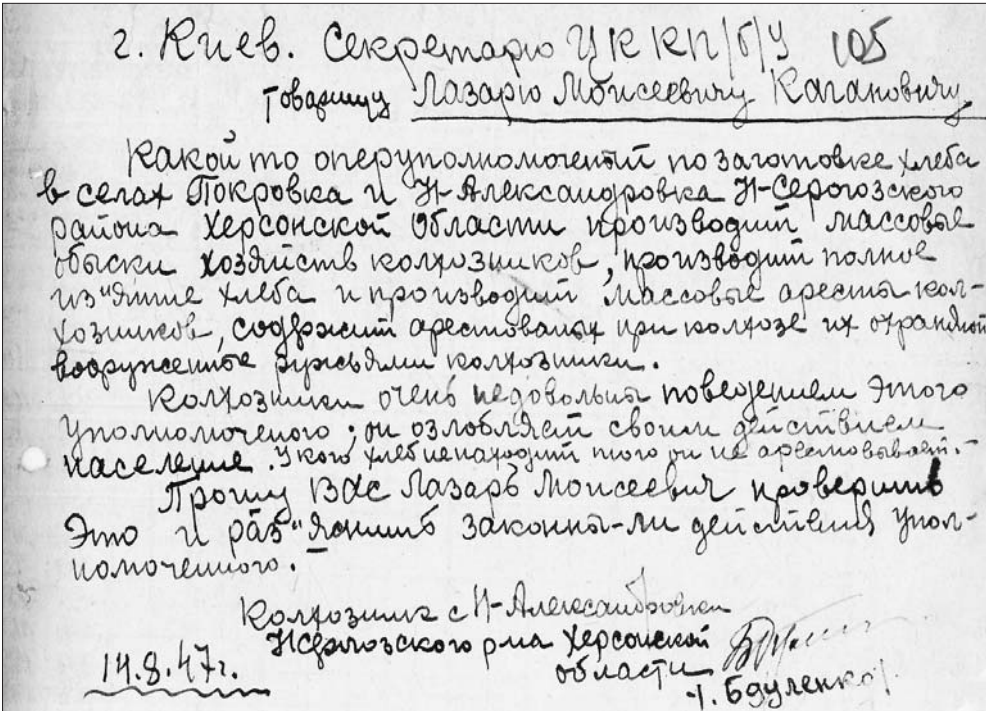 г. Киев. Секретарю ЦК КП/б/У 105
товарищу Лазарю Моисеевичу Кагановичу
Какой то оперуполномоченый по заготовке хлеба
в селах Покровка и Н-Александровка Н-Серогозского
района Херсонской Области производит массовые
обыски хозяйств колхозников, производит полное
из"ятие хлеба и производит массовые аресты кол-
хозников, содржит арестованых при колхозе их охраняют
вооруженные ружьями колхозники.
Колхозники очень недовольны поведением этого
уполномоченого; он озлобляет своим действием
население. У кого хлеб ненаходит того он не арестовывает.-
Прошу Вас Лазарь Моисеевич проверить
Это и раз"яснить законны-ли действия упол-
номоченного.
Колхозник с Н-Александровки
Нсерогозского р-на Херсонской
области
14.8.47г.